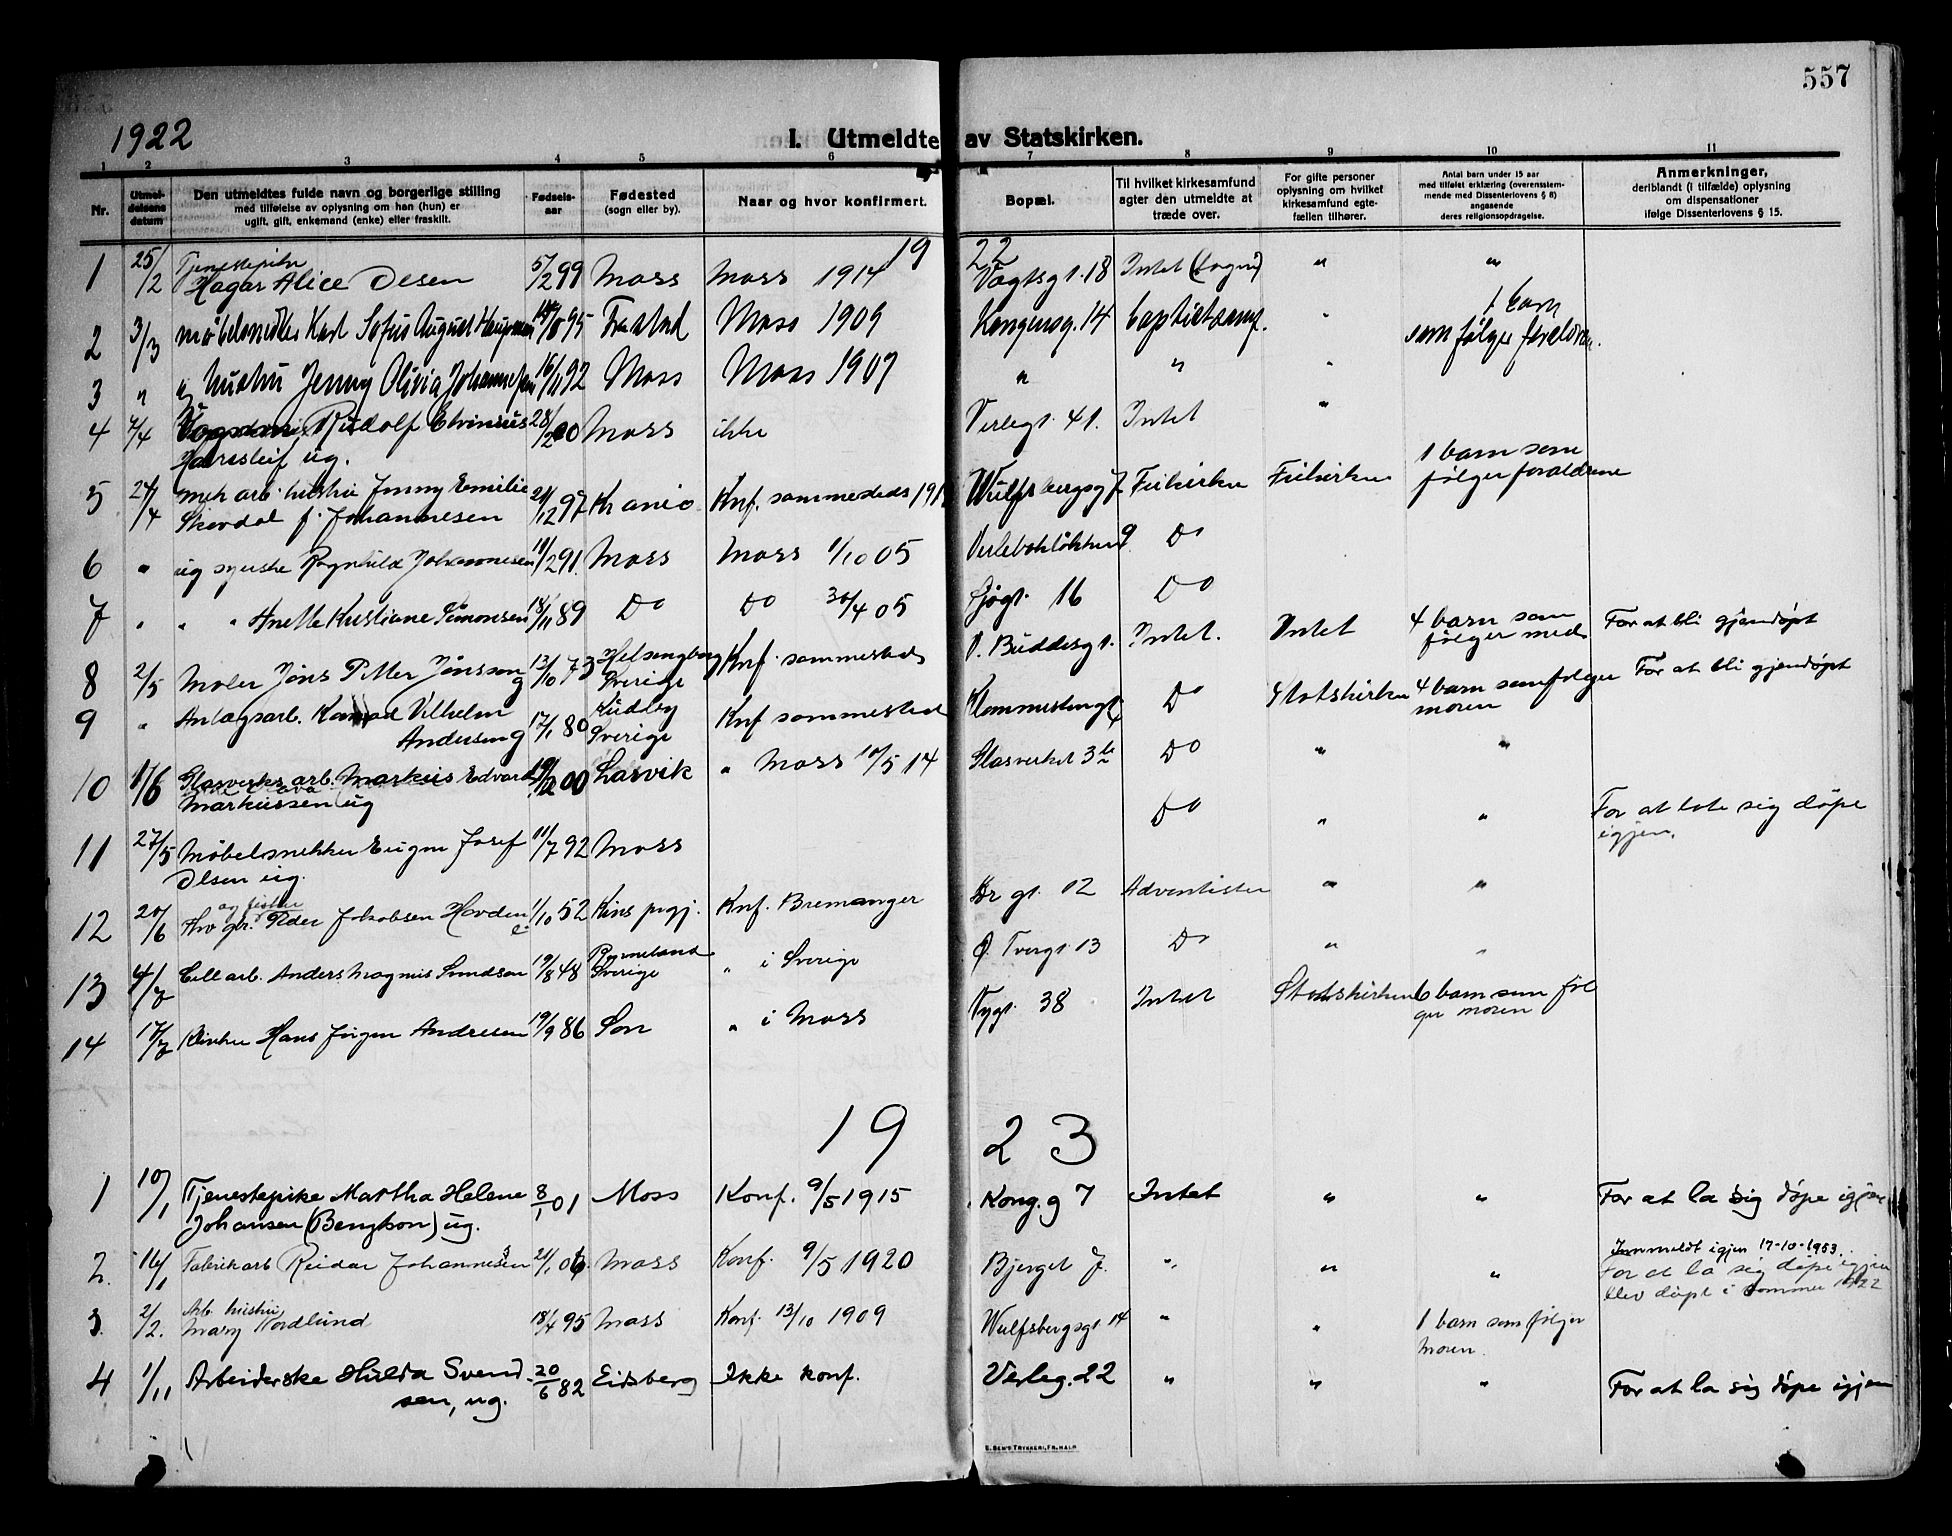 557
1922
I. Utmeldte av Statskirken.
1 2 3 4 5 6 7 8 9 10 11
Nr.
Utmel-
delsens
datum
Den utmeldtes fulde navn og borgerlige stilling
med tilføielse av oplysning om han (hun) er
ugift, gift, enkemand (enke) eller fraskilt.
Fødsels-
aar
Fødested
(sogn eller by).
Naar og hvor konfirmert.
Bopæl.
Til hvilket kirkesamfund
agter den utmeldte at
træde over.
For gifte personer
oplysning om hvilket
kirkesamfund egte-
fællen tilhører.
Antal barn under 15 aar
med tilføiet erklæring (overensstem-
mende med Dissenterlovens § 8)
angaaende
deres religionsopdragelse.
Anmerkninger,
deriblandt (i tilfælde) oplysning
om dispensationer
ifølge Dissenterlovens § 15.
19 22
Tjenestepike
1 25/2 Hagar Alice Olsen 5/2 99 Moss Moss 1914 Vogtsgt. 18 Intet " "
2 3/3 møbelsnedker Karl Sofus August 95 Moss 1909 Kongensg. 14 baptistsamf. 1 barn
som følger foreldrene.
3 " og hustru Jenny Olivia Johannesen 16/11 92 Moss Moss 1907 " " "
4 7/4 Rudolf Elvinius 28/2 00 Moss ikke Verlegt. 41. Intet "
ug.
5 24/4 mek. arb. hustru Jenny Emilie 21/12 97 Krania Knf. sammesteds Wulfsbergsg 7 Frikirken Frikirken 1 barn som
følger foreldrene
Skovdal f. Johannesen
6 " ug syerske Ragnhild Johannesen 11/2 91. Moss Moss 1/10 05 Verlebakløkken 9 Do
7 " " " Anette Kristiane Simonsen 18/11 89 Do Do 30/4 05 Sjøgt. 16 Do
8 2/5 Maler Jöns Petter Jönsson g 13/10 73 Helsingborg Sverige Knf. sammesteds V. Buddesgt. Intet. Intet 4 barn som
følger med For at bli gjendøpt
9 " Anlægsarb. Konrad Vilhelm 17/1 80 Rudby Sverige Knf sammesteds Do Statskirken 4 barn som følger
moren For at bli gjendøpt
Andersen g
10 17/6 Glasverksarb. Markus Edvard 00 Larvik " Moss 10/5 14 Glasverket Do " "
Markussen ug
11 27/5 Møbelsnekker Eugen Josef 11/7 92 Moss Do " " For at late sig døpe
igjen.
Olsen ug.
12 20/6 og fisker Peder Jakobsen Havden e. 1/10 52 Kins prgj. Knf. Bremanger Kr gt. 12 Adventister " "
13 4/7 Cell arb. Anders Magnus Svendsen 19/8 48 Sverige " i Sverige Ø. Tvergt. 13 Do " "
14 17/7 Hans Jörgen Andresen 19/9 86 Son " i Moss 38 Intet Statskirken 6 barn som føl
ger moren
19 23
1 10/1 Tjenestepike Martha Helene 8/1 01 Moss Konf. 9/5 1915 Kong. g 7 Intet " " For at la sig døpe igjen
Johansen (Bengtson) ug.
2. 16/1 Fabrikarb Reidar Johannesen 21/1 06 Moss Konf. 9/5 1920 Bjerget 7. " " " Innmeldt igjen 17-10-1953.
For at la sig døpe igjen
blev døpt i sommer 1922
Arb. hustru
3. 2/2. Mary Nordlund 18/4 95 Moss Konf. 13/10 1909 Wulfsbergsgt 14 " " 1 barn som følger
Moren.
4 1/11 Arbeiderske Hulda Svend- 20/6 82 Eidsberg Ikke konf. Verleg. 22 " " " For at la sig døpe igjen
sen, ug.